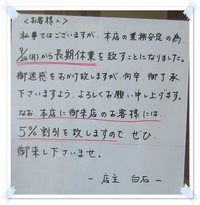 <お客様へ>
私事ではございますが、本店の業務安定の為、
(月)から長期休業を致すことになりました。
御迷惑をおかけ致しますが、何卒、御了承
下さいますよう、よろしくお願い申し上げます。
なお本店に御来店のお客様には、
5%割引を致しますので、ぜひ、
御来し下さいませ。
－店主 白石－